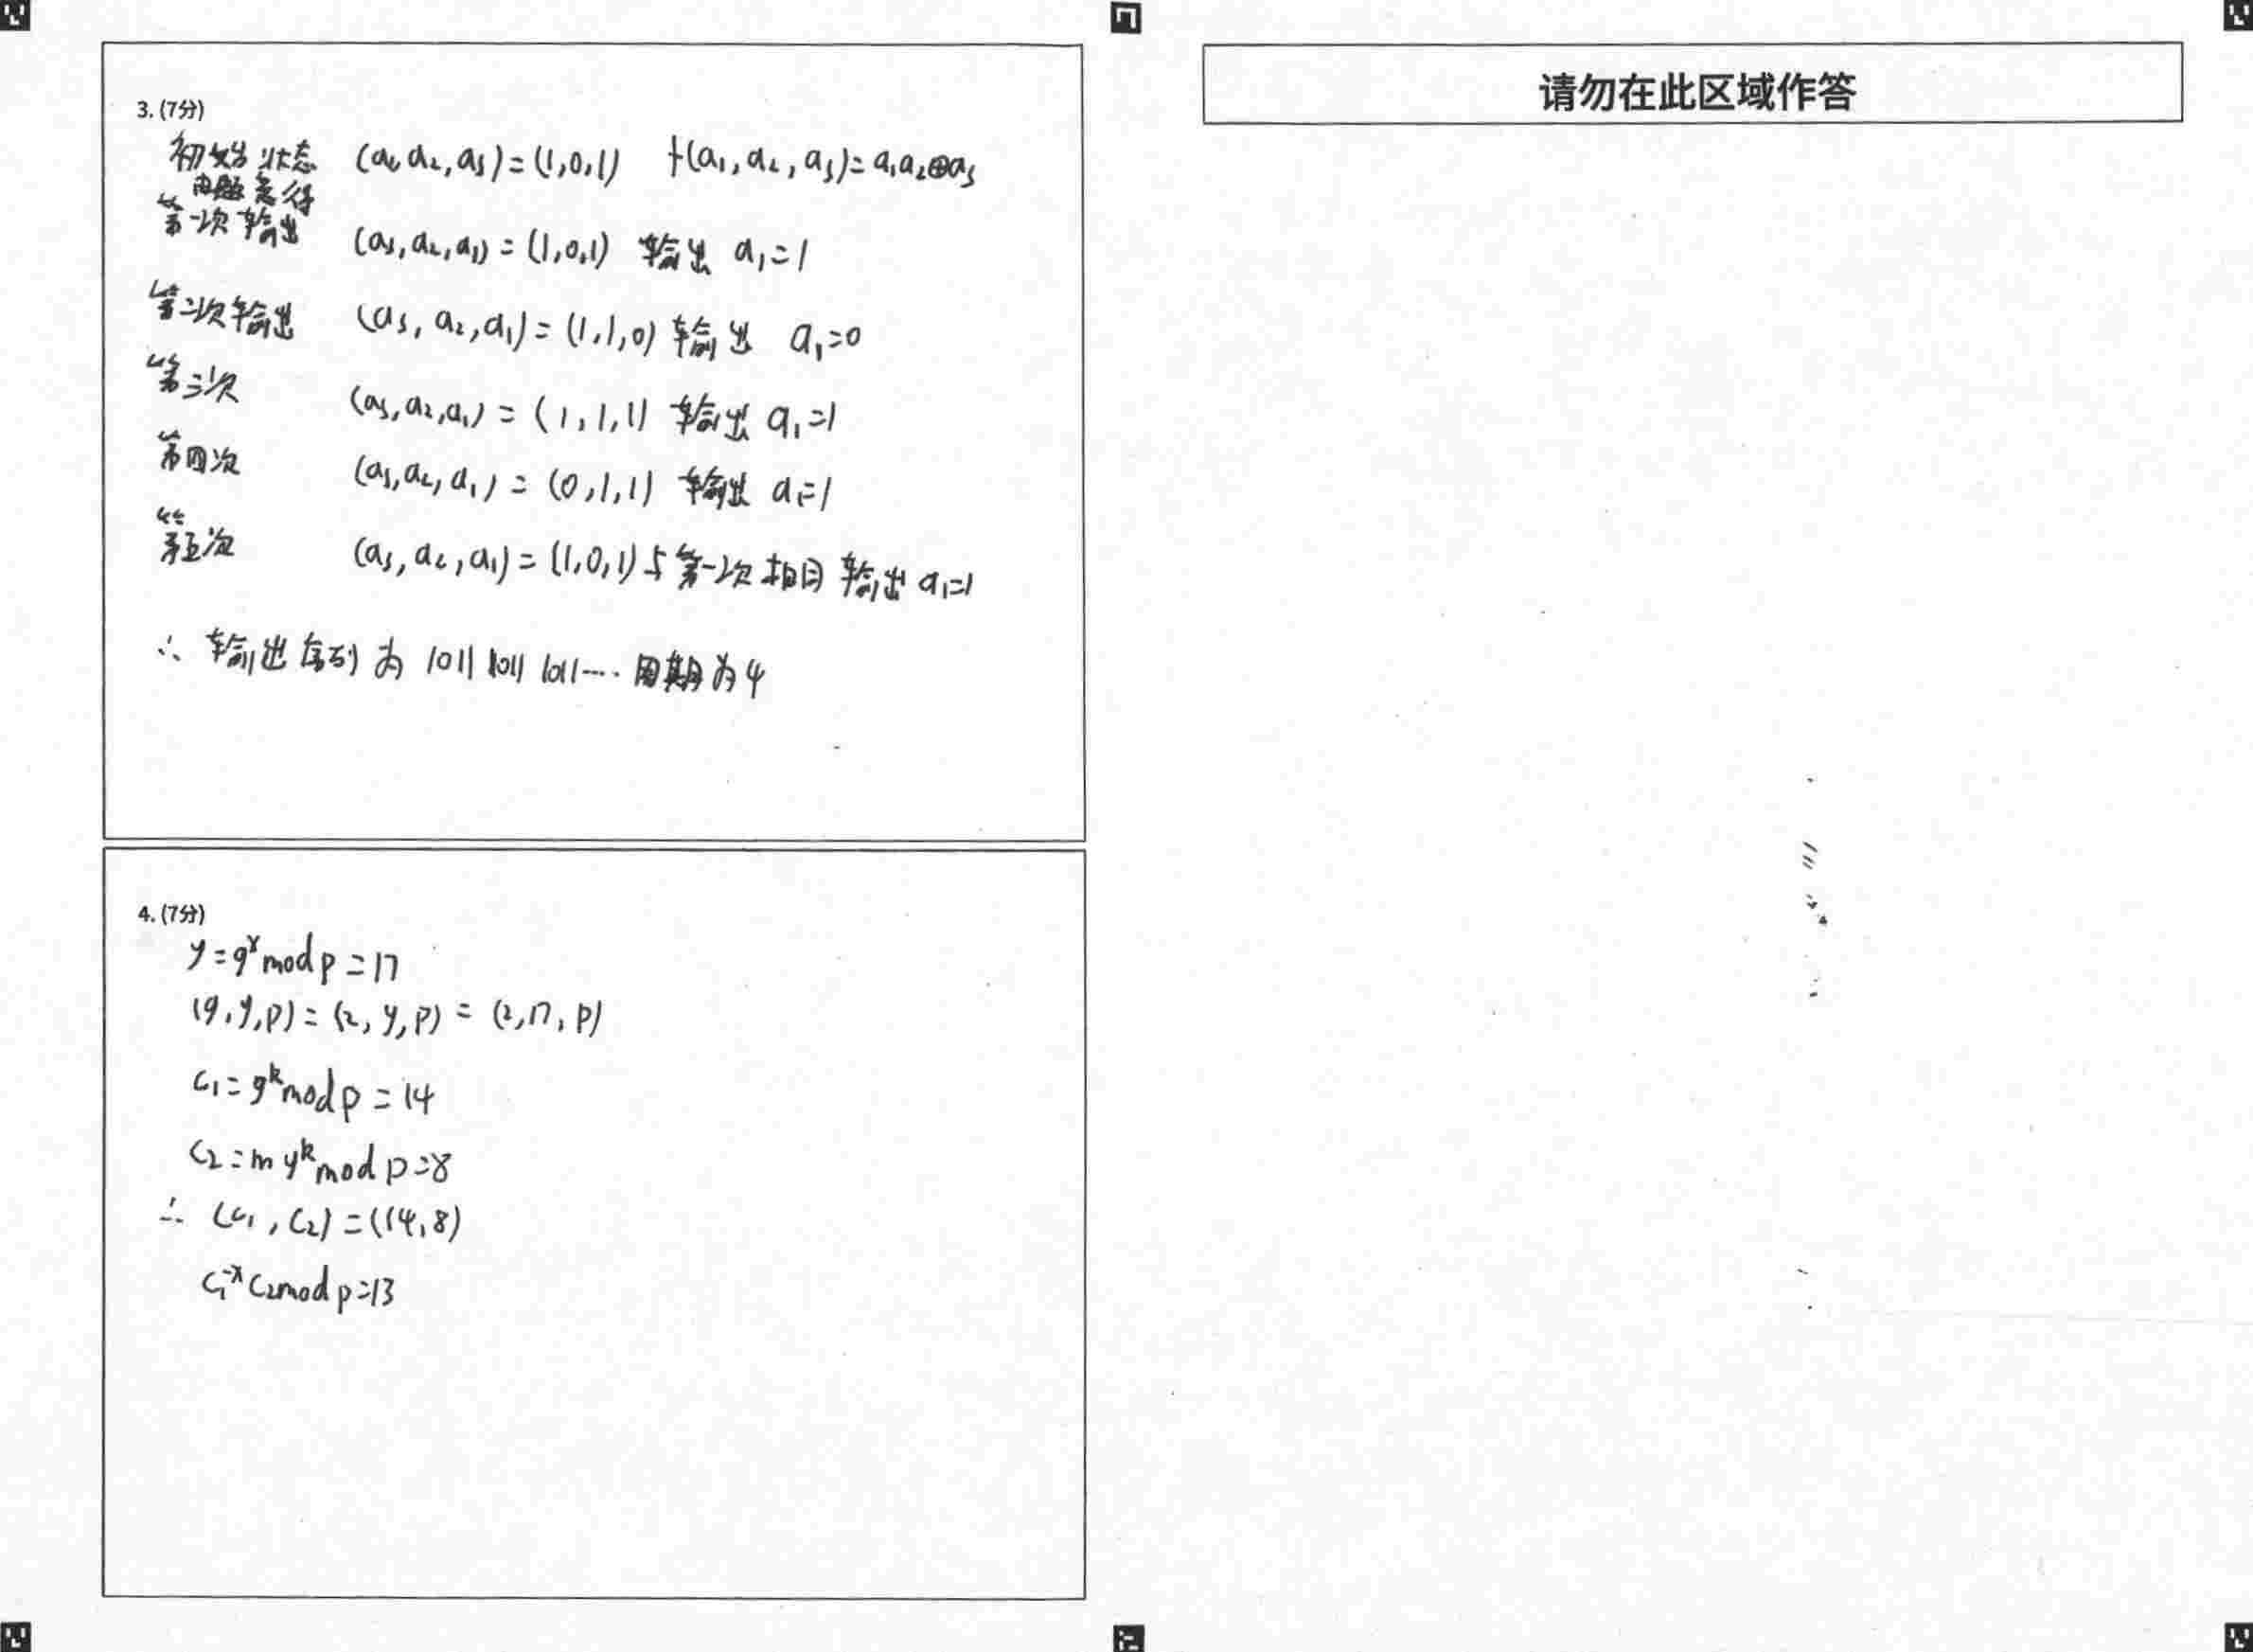 3. (7分)
初始状态 (a₁,a₂,a₃)=(1,0,1) f(a₁,a₂,a₃)=a₁a₂⊕a₃
由题意得
第一次输出 (a₃,a₂,a₁)=(1,0,1) 输出 a₁=1
第二次输出 (a₃,a₂,a₁)=(1,1,0) 输出 a₁=0
第三次 (a₃,a₂,a₁)=(1,1,1) 输出 a₁=1
第四次 (a₃,a₂,a₁)=(0,1,1) 输出 a₁=1
第五次 (a₃,a₂,a₁)=(1,0,1)与第一次相同 输出 a₁=1
∴ 输出序列为 1011 1011 1011···· 周期为4
4. (7分)
y=gˣmod p=17
(g,y,p)=(2,y,p)=(2,17,p)
c₁=gᵏmod p=14
c₂=myᵏmod p=8
∴ (c₁,c₂)=(14,8)
c₁⁻ˣc₂mod p=13
请勿在此区域作答